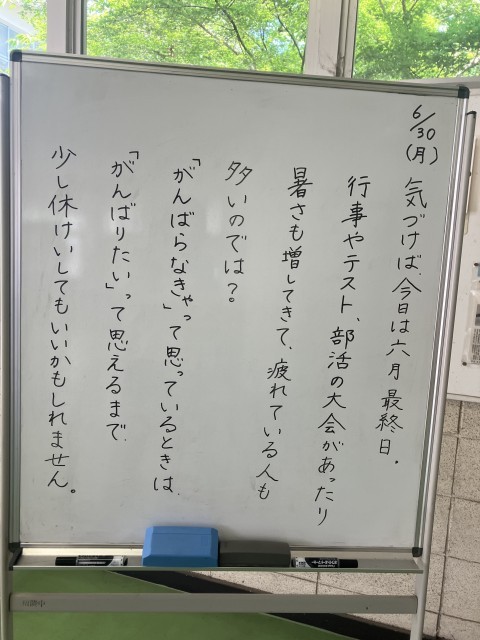 6/30(月)
気づけば、今日は六月最終日。
行事やテスト、部活の大会があったり
暑さも増してきて、疲れている人も
多いのでは？
「がんばらなきゃ」って思っているときは、
「がんばりたい」って思えるまで、
少し休けいしてもいいかもしれません。